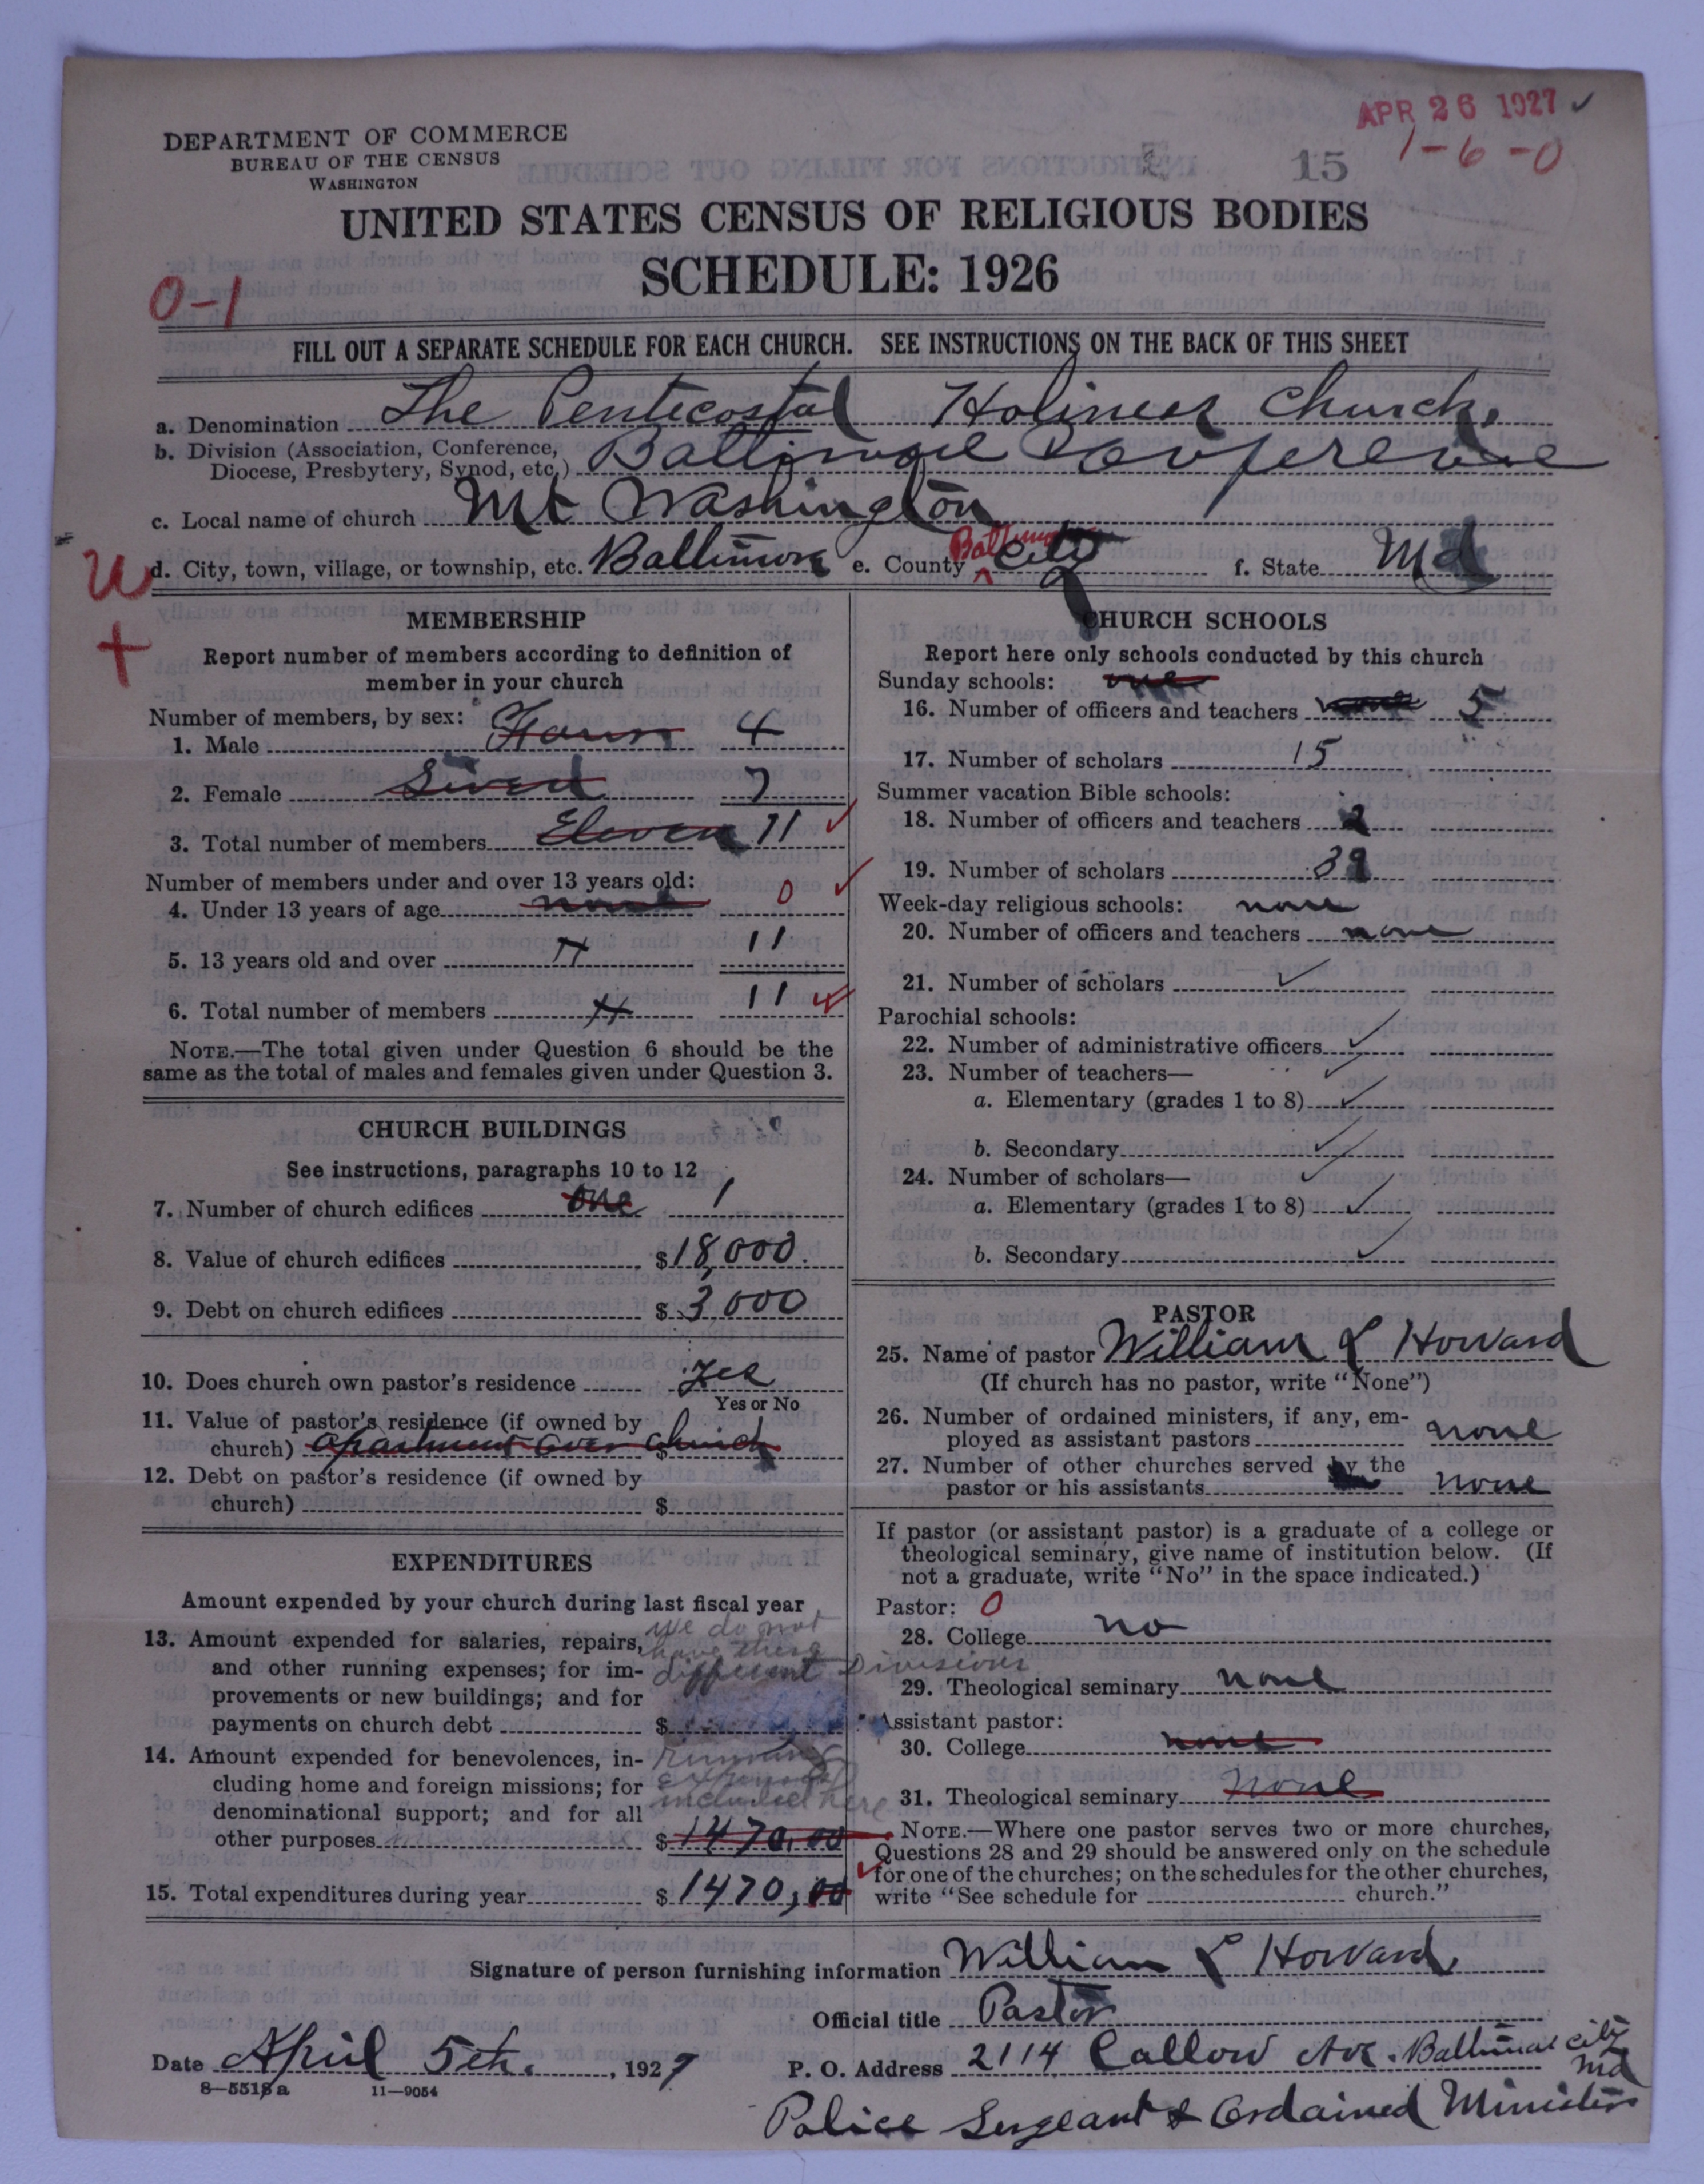 APR 26 1927 ✓
1-6-0
15
DEPARTMENT OF COMMERCE
BUREAU OF THE CENSUS
WASHINGTON
UNITED STATES CENSUS OF RELIGIOUS BODIES
SCHEDULE: 1926
0-1
FILL OUT A SEPARATE SCHEDULE FOR EACH CHURCH. SEE INSTRUCTIONS ON THE BACK OF THIS SHEET
a. Denomination The Pentecostal Holiness Church.
b. Division (Association, Conference,
Diocese, Presbytery, Synod, etc.) Baltimore Conference
c. Local name of church Mt Washington
d. City, town, village, or township, etc. Baltimore e. County Baltimore City f. State Md
MEMBERSHIP
Report number of members according to definition of
member in your church
Number of members, by sex:
1. Male Four 4
2. Female Seven 7
3. Total number of members Eleven 11
Number of members under and over 13 years old:
4. Under 13 years of age none 0
5. 13 years old and over 11
6. Total number of members 11
NOTE.—The total given under Question 6 should be the
same as the total of males and females given under Question 3.
CHURCH BUILDINGS
See instructions, paragraphs 10 to 12
7. Number of church edifices one 1
8. Value of church edifices $18,000.
9. Debt on church edifices $3,000
10. Does church own pastor's residence Yes
Yes or No
11. Value of pastor's residence (if owned by
church) apartment over church
12. Debt on pastor's residence (if owned by
church) $
EXPENDITURES
Amount expended by your church during last fiscal year
13. Amount expended for salaries, repairs, we do not
and other running expenses; for im- have these
provements or new buildings; and for different Divisions
payments on church debt $
14. Amount expended for benevolences, in- running
cluding home and foreign missions; for expenses
denominational support; and for all included here
other purposes $1470.00
15. Total expenditures during year $1470,00
CHURCH SCHOOLS
Report here only schools conducted by this church
Sunday schools: one
16. Number of officers and teachers 5
17. Number of scholars 15
Summer vacation Bible schools:
18. Number of officers and teachers 2
19. Number of scholars
Week-day religious schools: none
20. Number of officers and teachers none
21. Number of scholars ✓
Parochial schools:
22. Number of administrative officers ✓
23. Number of teachers— ✓
a. Elementary (grades 1 to 8) ✓
b. Secondary ✓
24. Number of scholars— ✓
a. Elementary (grades 1 to 8) ✓
b. Secondary ✓
PASTOR
25. Name of pastor William L Howard
(If church has no pastor, write "None")
26. Number of ordained ministers, if any, em-
ployed as assistant pastors none
27. Number of other churches served by the
pastor or his assistants none
If pastor (or assistant pastor) is a graduate of a college or
theological seminary, give name of institution below. (If
not a graduate, write "No" in the space indicated.)
Pastor: 0
28. College no
29. Theological seminary none
Assistant pastor:
30. College none
31. Theological seminary none
NOTE.—Where one pastor serves two or more churches,
Questions 28 and 29 should be answered only on the schedule
for one of the churches; on the schedules for the other churches,
write "See schedule for church."
Signature of person furnishing information William L Howard,
Official title Pastor
Date April 5th. , 1927 P. O. Address 2114 Callow Ave. Baltimore City
Md
8-5518a 11-9054
Police Sergeant & Ordained Minister